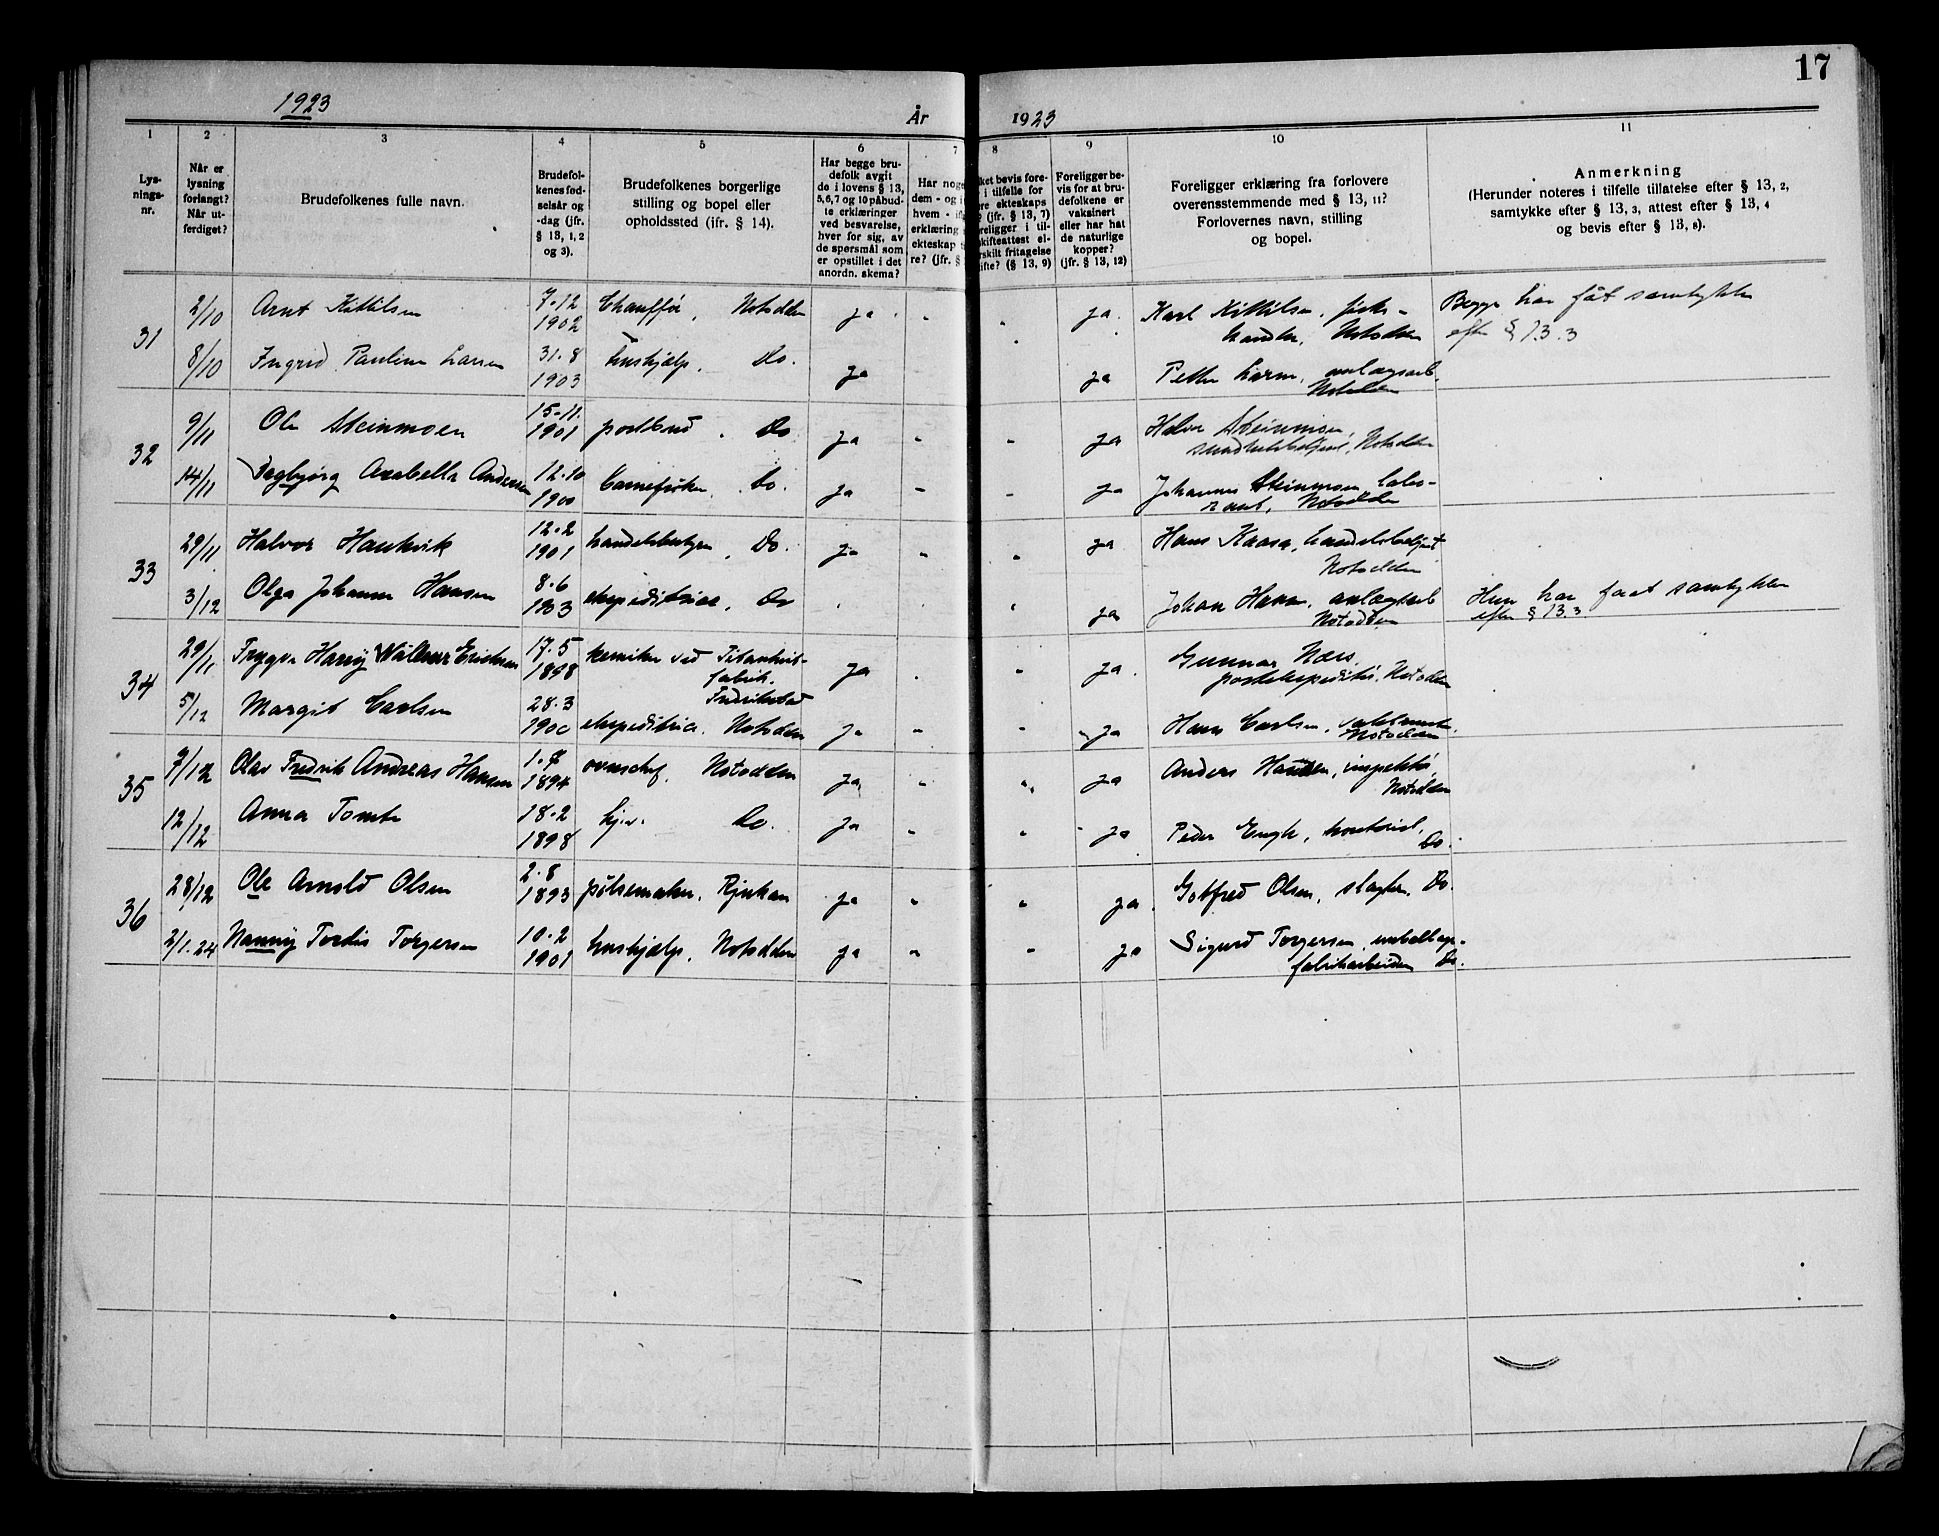 17
1923
År 1923
1
2
3
4
5
6
7
8
9
10
11
Lys-
nings-
nr.
Når er
lysning
forlangt?
Når ut-
ferdiget?
Brudefolkenes fulle navn.
Brudefol-
kenes fød-
selsår og
-dag (jfr.
§ 13, 1, 2
og 3).
Brudefolkenes borgerlige
stilling og bopel eller
opholdssted (ifr. § 14).
Har begge bru-
defolk avgit
de i lovens § 13,
5, 6, 7 og 10 påbud-
te erklæringer
ved besvarelse,
hver for sig, av
de spørsmål som
er opstillet i det
anordn. skema?
Har noge
dem - og i
hvem - if
erklæring
ekteskap
re? (jfr. §
ket bevis fore-
i tilfelle for
re ekteskaps
? (jfr. § 13, 7)
religger i til-
kifteattest el-
rskilt fritagelse
ifte? (§ 13, 9)
Foreligger be-
vis for at bru-
defolkene er
vaksinert
eller har hat
de naturlige
kopper?
(jfr. § 13, 12)
Foreligger erklæring fra forlovere
overensstemmende med § 13, 11?
Forlovernes navn, stilling
og bopel.
Anmerkning
(Herunder noteres i tilfelle tillatelse efter § 13, 2,
samtykke efter § 13, 3, attest efter § 13, 4
og bevis efter § 13, 8).
31
2/10 Arnt Kittilsen 7.12 1902 Chauffør, Notodden ja " " ja Karl Kittilsen, Notodden
Begge har fåt samtykke
efter § 13.3
8/10 Ingrid Pauline Larsen 31.8 1903 Hushjælp, Do. ja ja Petter Larsen, anlægsarb. Notodden
32
9/11 Ole Steinmoen 15-11. 1901 postbud, Do ja " " ja Steinmoen, Notodden
14/11 Dagbjørg Arabella Andersen 12.10 1900 Do. ja " " ja Johannes Steinmoen, labo-
rant, Notodden
33
29/11 Halvor Haukvik 12.2 1901 handelsbestyrer, Do. ja " " ja Hans Kaasa, handelsbetjent
Notodden
3/12 Olga Johanne Hansen 8.6 1903 ekspeditrice, Do ja Johan Hansen, anlægsarb
Notodden
Hun har faaet samtykke
efter § 13.3.
34
29/11 Trygve Harry Walmer Ericksen 17.5 1898 kemiker ved Titanhvit-
fabrik.
Fredrikstad
ja " ja Gunnar Næss,
postekspeditør, Notodden
5/12 Margit Carlsen 28.3 1900 ekspeditrice. Notodden ja " " ja Hans Carlsen, Notodden
35
7/12 Olav Fredrik Andreas Hansen 1.7 1894 ovnschef, Notodden ja " " ja Anders Hansen, inspektør,
Notodden
12/12 Anna Tomte 18.2 1898 hj.v. Do. ja " " ja Peder Engh, kontorist,
Do.
36
28/12 Ole Arnold Olsen 2.8 1893 pølsemaker, Rjukan ja " " ja Gotfred Olsen, slagter, Do.
2/1.24 Nanny Tordis Torgersen 10.2 1901 hushjælp, Notodden ja " " ja Sigurd Torgersen,
fabrikarbeider Do.